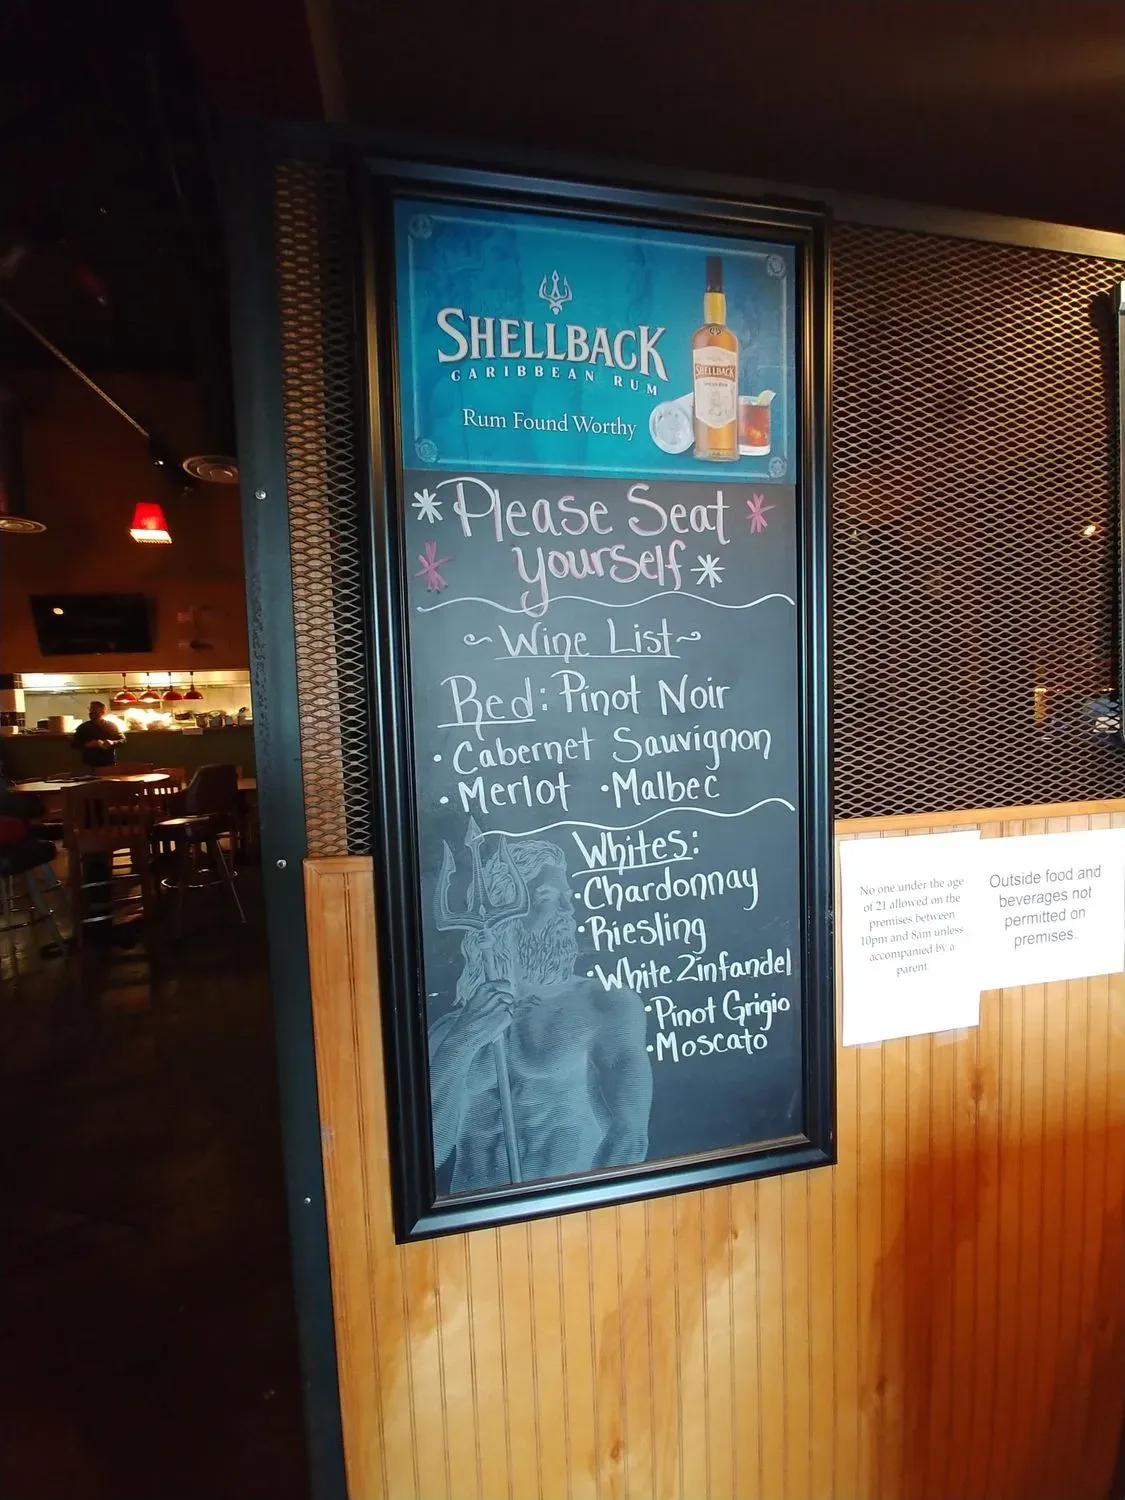 SHELLBACK
CARIBBEAN RUM
Rum Found Worthy
SHELLBACK
* Please Seat *
* yourself *
~ Wine List ~
Red: Pinot Noir
• Cabernet Sauvignon
• Merlot • Malbec
Whites:
• Chardonnay
• Riesling
• White Zinfandel
• Pinot Grigio
• Moscato
No one under the age
of 21 allowed on the
premises between
10pm and 8am unless
accompanied by a
parent
Outside food and
beverages not
permitted on
premises.